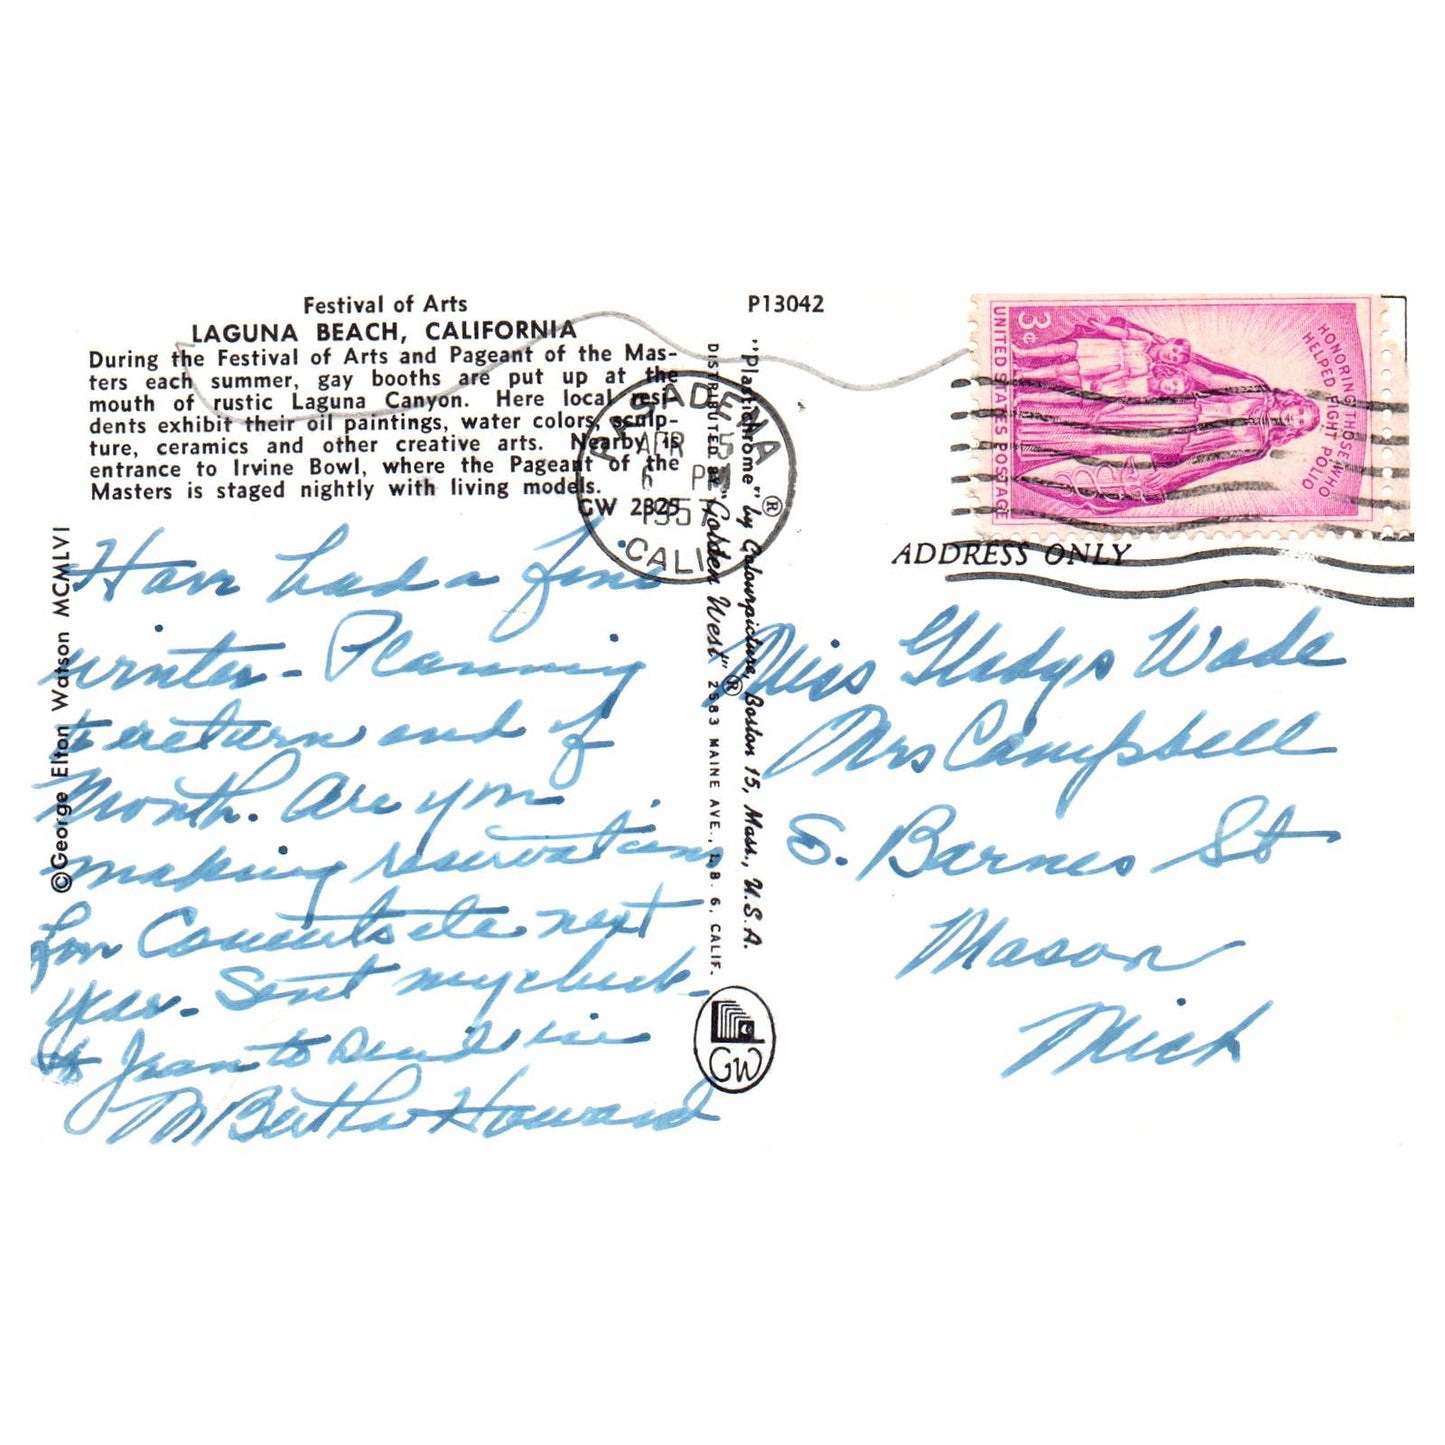 Festival of Arts
LAGUNA BEACH, CALIFORNIA
During the Festival of Arts and Pageant of the Mas-
ters each summer, gay booths are put up at the
mouth of rustic Laguna Canyon. Here local resi-
dents exhibit their oil paintings, water colors, sculp-
ture, ceramics and other creative arts. Nearby is
entrance to Irvine Bowl, where the Pageant of the
Masters is staged nightly with living models.
GW 2825
P13042
©George Elton Watson MCMLVI
Have had a fine
winter - Planning
to return end of
Month. Are you
making reservations
for Connecticut next
year. Sent my check
to Jean to
M Bertha Howard
DISTRIBUTED BY "Golden West" ® 2583 MAINE AVE., L.B. 6, CALIF.
"Plastichrome" ® by Colourpicture, Boston 15, Mass., U.S.A.
GW
PASADENA
APR 5
6 PM
1957
CALIF.
UNITED STATES POSTAGE
3¢
HONORING THOSE WHO
HELPED FIGHT POLIO
ADDRESS ONLY
Miss Gladys Wade
Mrs Campbell
S. Barnes St
Mason
Mich